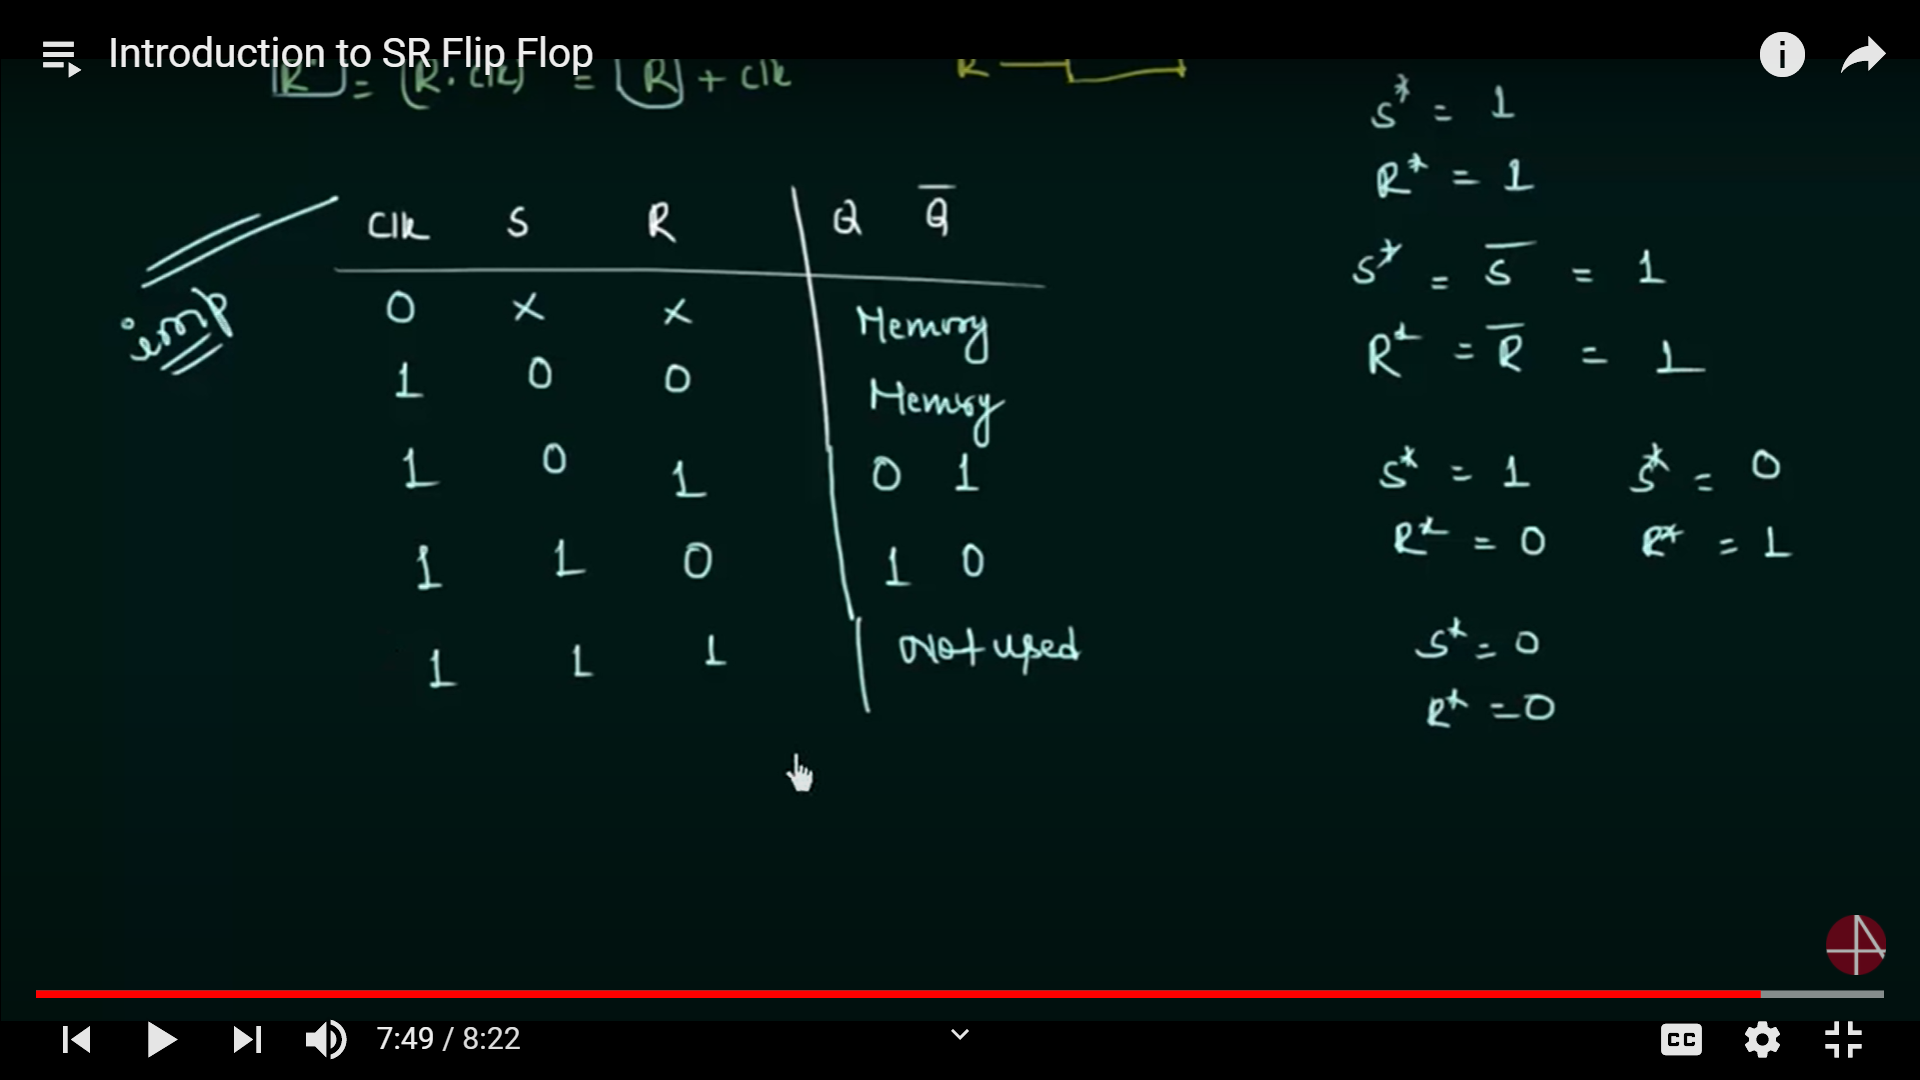 Introduction to SR Flip Flop
R* = (R · Clk) = R + Clk
R
S* = 1
R* = 1
Clk S R Q Q̅
0 x x Memory
1 0 0 Memory
1 0 1 0 1
1 1 0 1 0
1 1 1 Not used
imp
S* = S̅ = 1
R* = R̅ = 1
S* = 1 S* = 0
R* = 0 R* = 1
S* = 0
R* = 0
7:49 / 8:22
CC